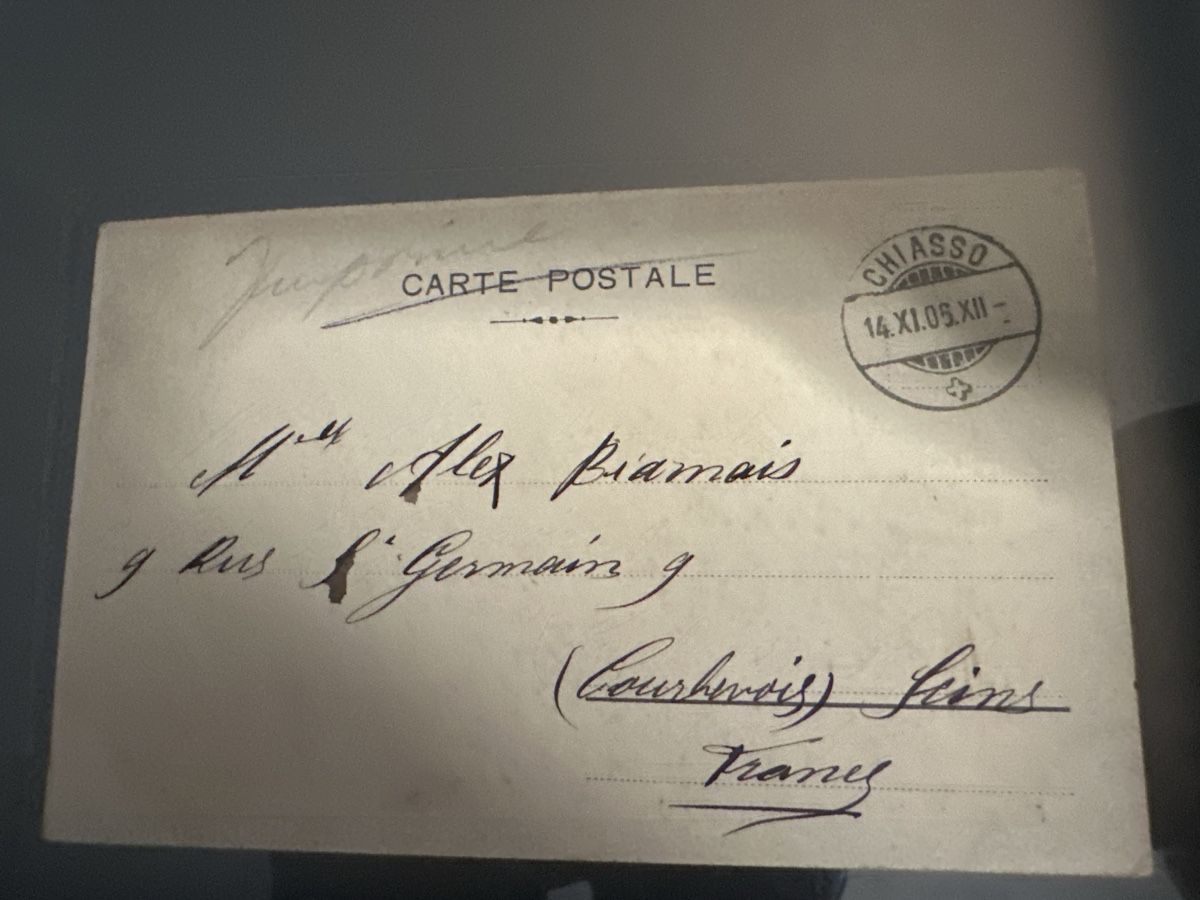 Imprimé
CARTE POSTALE
CHIASSO
14.XI.05.XII-
Mlle Alex Biamais
9 Rue St Germain 9
(Courbevoie) Seine
France